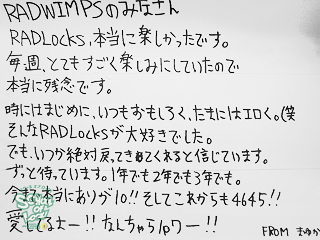 RADWIMPSのみなさん
RADLocks、本当に楽しかったです。
毎週、とてもすごく楽しみにしていたので
本当に残念です。
時にはまじめに、いつもおもしろく、たまにはエロく。(笑
そんなRADLocksが大好きでした。
でも、いつか絶対戻ってきてくれると信じています。
ずっと待っています。1年でも2年でも3年でも。
今まで本当にありが10!!そしてこれからも4645!!
愛してるよー!!なんちゃらpワー!!
FROM まゆか